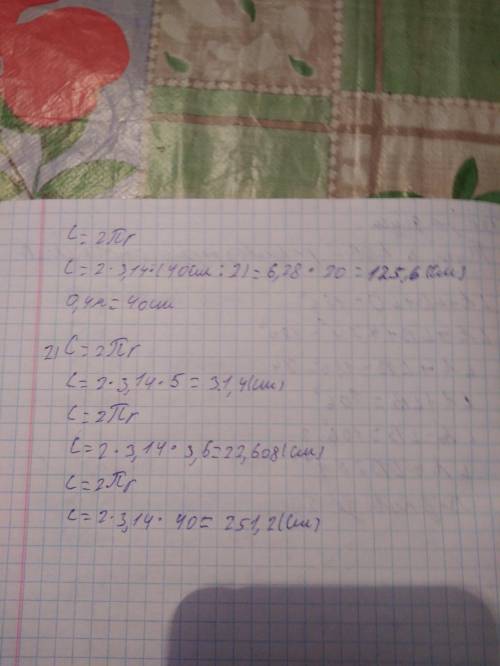 C = 2πr
C = 2 · 3,14 · (40см : 2) = 6,28 · 20 = 125,6 (см)
0,4м = 40см
2) C = 2πr
C = 2 · 3,14 · 5 = 31,4 (см)
C = 2πr
C = 2 · 3,14 · 3,6 = 22,608 (см)
C = 2πr
C = 2 · 3,14 · 40 = 251,2 (см)